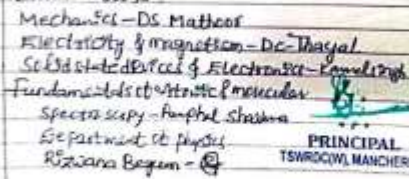 Mechanics-DS. Mathoor
Electricity & magnetism-DC-Thayal
Solid state devices & Electronics-Kamalsingh
Fundamentals of atomic & molecular
Spectroscopy - Ramphal Sharma
Department of physics
Rizwana Begum -
PRINCIPAL
TSWRDC(W), MANCHER